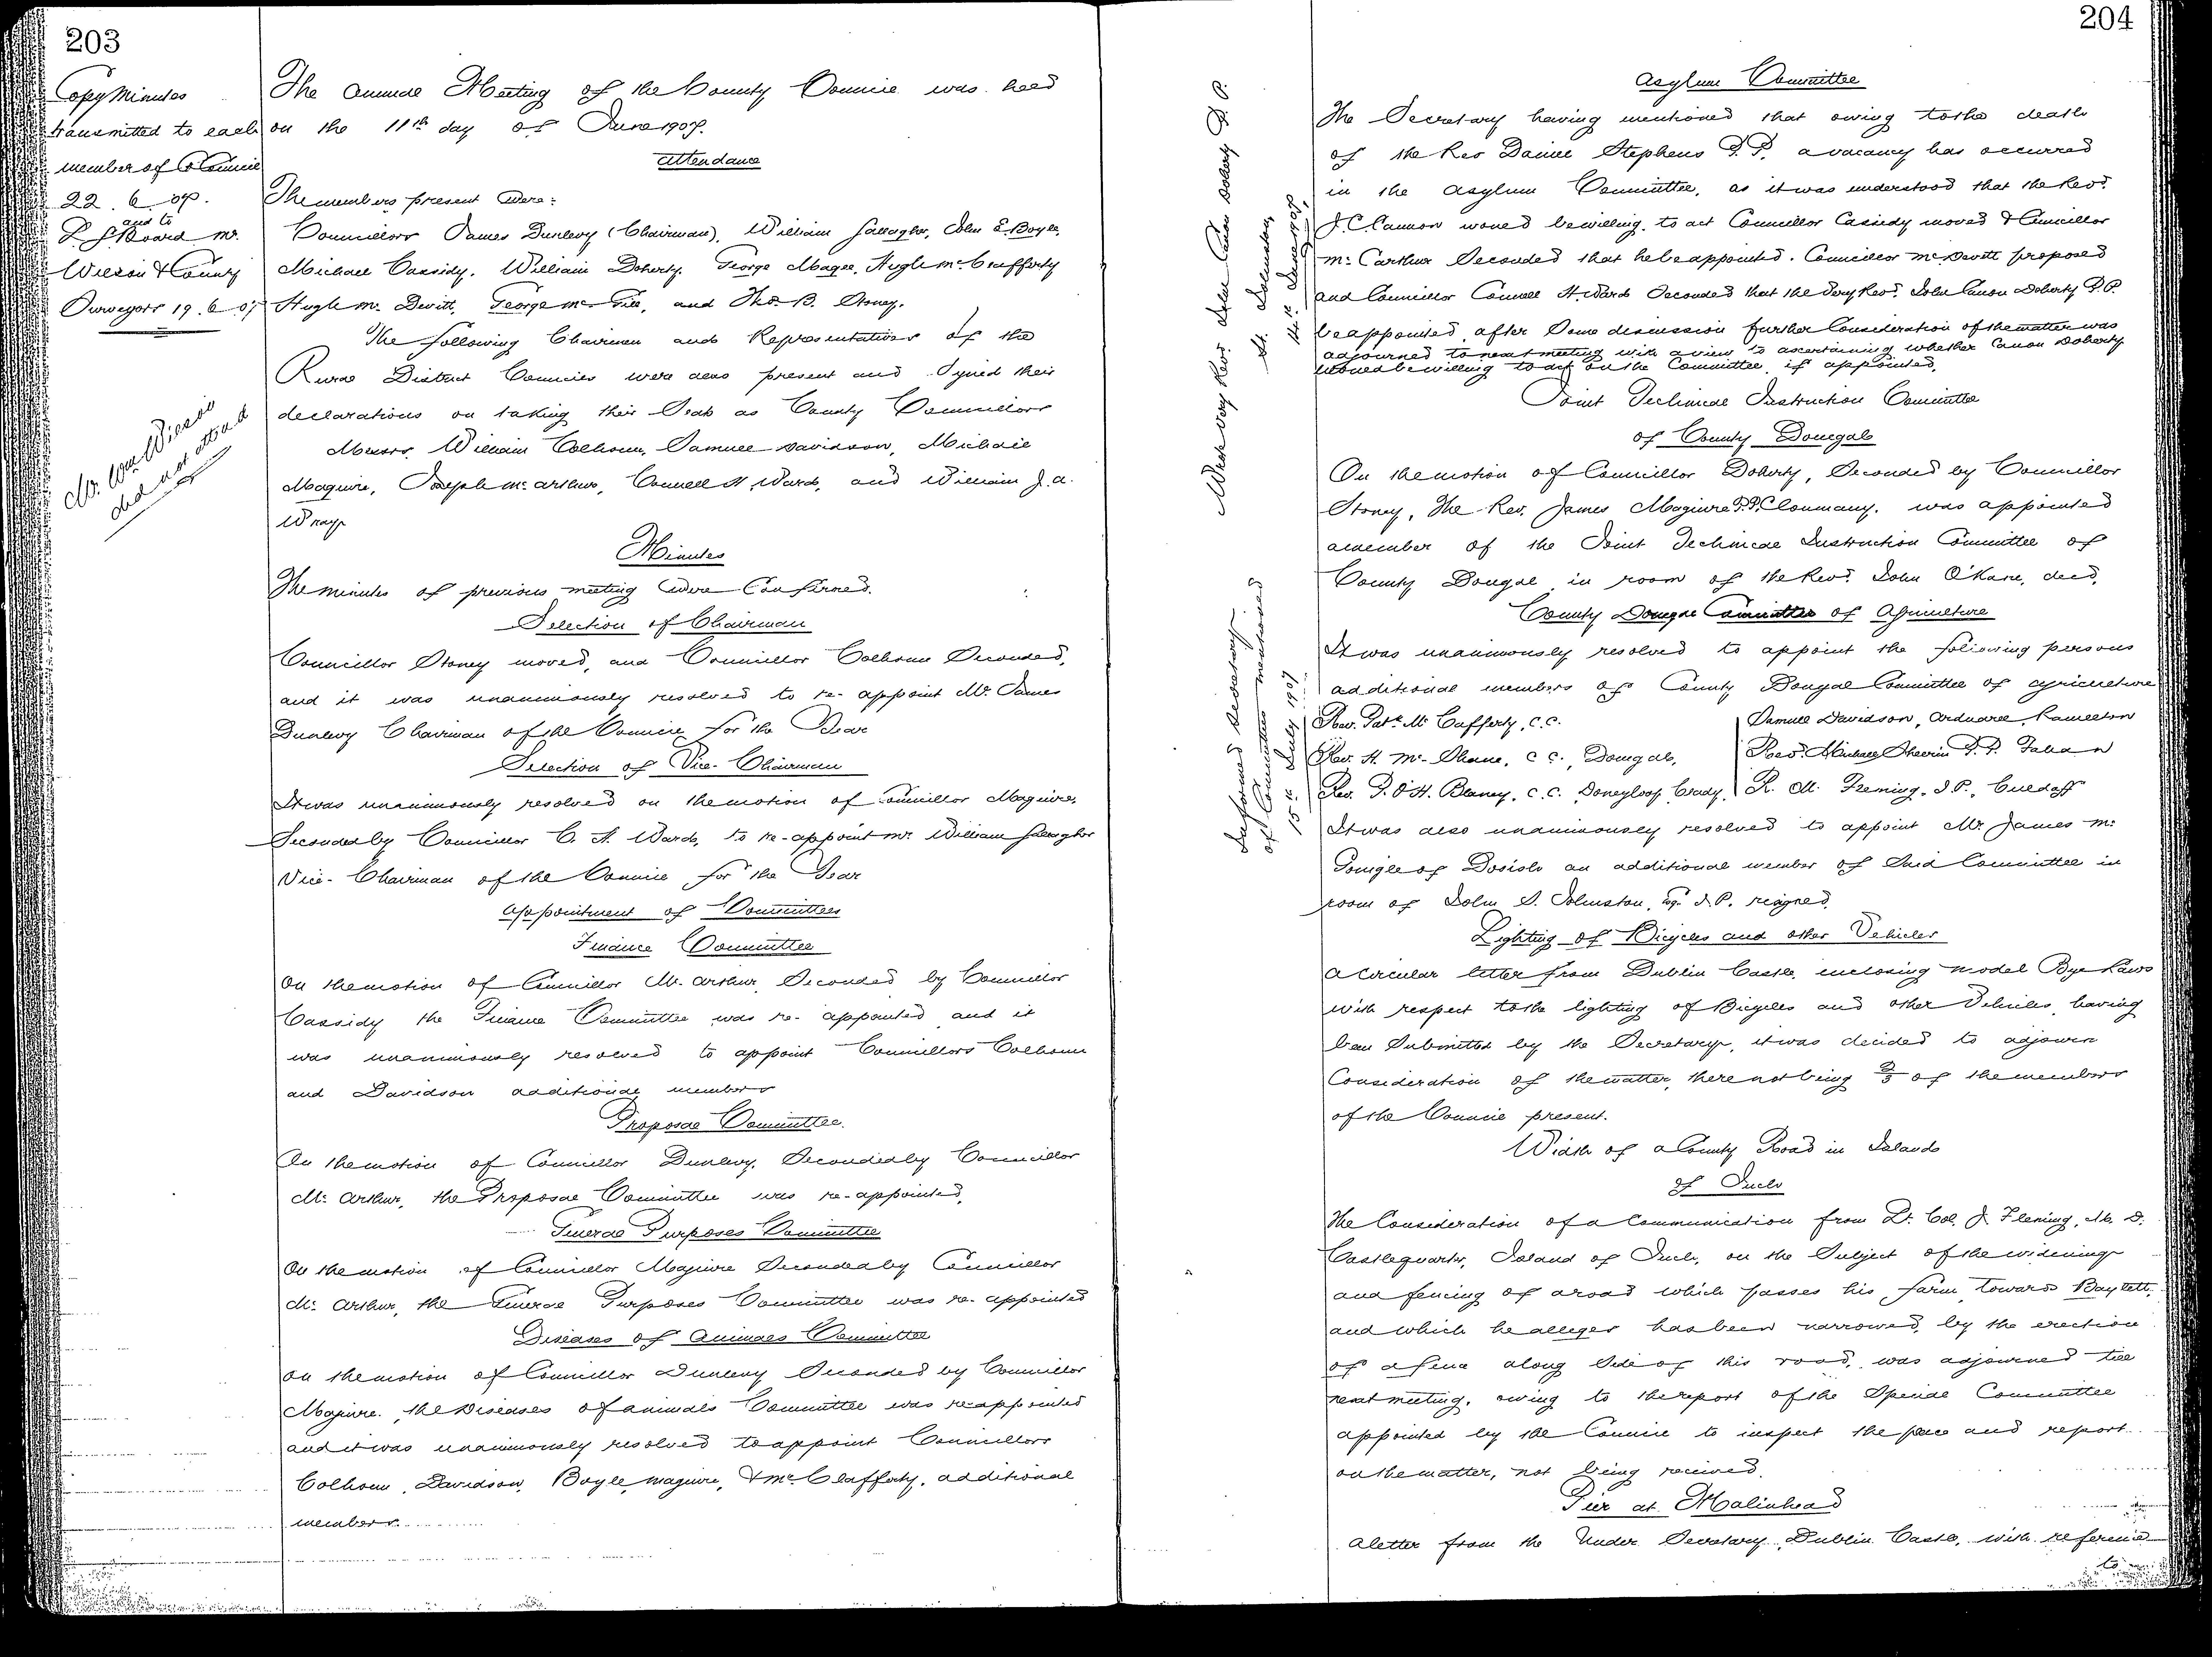 203
Copy Minutes
transmitted to each
member of Co Council
22. 6. 07.
and to
L. G. Board Mr.
Wilson & County
Surveyors 19. 6. 07
Mr. Wm Wilson
did not attend
The Annual Meeting of the County Council was held
on the 11th day of June 1907.
Attendance
The members present were:
Councillors James Dunlevy (Chairman), William Gallagher, John E. Boyle,
Michael Cassidy, William Doherty, George Magee, Hugh McClafferty
Hugh Mc Devitt, George Mc and Thos. B. Stoney.
The following Chairmen and Representatives of the
Rural District Councils were also present and signed their
declarations on taking their Seats as County Councillors
Messrs. William Colhoun, Samuel Davidson, Michael
Maguire, Joseph Mc Arthur, Connell H. Ward, and William J. A.
Wray
Minutes
The minutes of previous meeting were Confirmed.
Selection of Chairman
Councillor Stoney moved, and Councillor Colhoun Seconded,
and it was unanimously resolved to re-appoint Mr. James
Dunlevy Chairman of the Council for the Year
Selection of Vice-Chairman
It was unanimously resolved on the motion of Councillor Maguire,
Seconded by Councillor C. H. Ward, to re-appoint Mr. William Gallagher
Vice-Chairman of the Council for the Year
Appointment of Committees
Finance Committee
On the motion of Councillor Mc Arthur Seconded by Councillor
Cassidy the Finance Committee was re-appointed and it
was unanimously resolved to appoint Councillors Colhoun
and Davidson additional members
Proposal Committee.
On the motion of Councillor Dunlevy, Seconded by Councillor
Mc Arthur, the Proposal Committee was re-appointed.
General Purposes Committee
On the motion of Councillor Maguire Seconded by Councillor
Mc Arthur, the General Purposes Committee was re-appointed
Diseases of Animals Committee
On the motion of Councillor Dunlevy Seconded by Councillor
Maguire, the Diseases of Animals Committee was re appointed
and it was unanimously resolved to appoint Councillors
Colhoun, Davidson, Boyle, Maguire, & McClafferty, additional
members.
204
Wrote Very Revd. John Canon Doherty P. P.
St. Johnston,
14th June 1907.
Informed Secretary
of Committee mentioned
15th July 1907
Asylum Committee
The Secretary having mentioned that owing to the death
of the Rev Daniel Stephens P. P. a vacancy has occurred
in the Asylum Committee, as it was understood that the Revd.
J. C. Cannon would be willing to act Councillor Cassidy moved & Councillor
Mc Carthur Seconded that he be appointed. Councillor McDevitt proposed
and Councillor Connell H. Ward Seconded that the Very Revd. John Canon Doherty P. P.
be appointed, after Some discussion further Consideration of the matter was
adjourned to next meeting with a view to ascertaining whether Canon Doherty
would be willing to act on the Committee, if appointed.
Joint Technical Instruction Committee
of County Donegal
On the motion of Councillor Doherty, Seconded by Councillor
Stoney, The Rev. James Maguire P.P. Clonmany, was appointed
a member of the Joint Technical Instruction Committee of
County Donegal in room of the Revd. John O'Kane, decd.
County Donegal Committee of Agriculture
It was unanimously resolved to appoint the following persons
additional members of County Donegal Committee of Agriculture
Rev. Patk. Mc Cafferty, C.C.
Rev. H. Mc Shane, C.C., Donegal,
Rev. P. O'H. Blaney, C.C. Doneyloop, Crady,
Samuel Davidson, Ardnaree, Ramelton
Revd. Michael Shevin P. P. Fahan
R. M. Fleming, J.P., Culdaff
It was also unanimously resolved to appoint Mr. James Mc
Gonigle of an additional member of Said Committee in
room of John S. Johnston, Esq. J.P. resigned.
Lighting of Bicycles and other Vehicles
A Circular letter from Dublin Castle, enclosing model Bye Laws
with respect to the lighting of Bicycles and other Vehicles, having
been Submitted by the Secretary, it was decided to adjourn
Consideration of the matter, there not being 2/3 of the members
of the Council present.
Width of a County Road in Island
of Inch
The Consideration of a Communication from Lt. Col. J. Fleming, M. D.
Castlequarter, Island of Inch, on the Subject of the widening
and fencing of a road which passes his farm towards
and which he alleges has been narrowed, by the erection
of a fence along Side of this road, was adjourned till
next meeting, owing to the report of the Special Committee
appointed by the Council to inspect the place and report
on the matter, not being received.
Pier at Malinhead
A letter from the Under Secretary, Dublin Castle, with reference
to